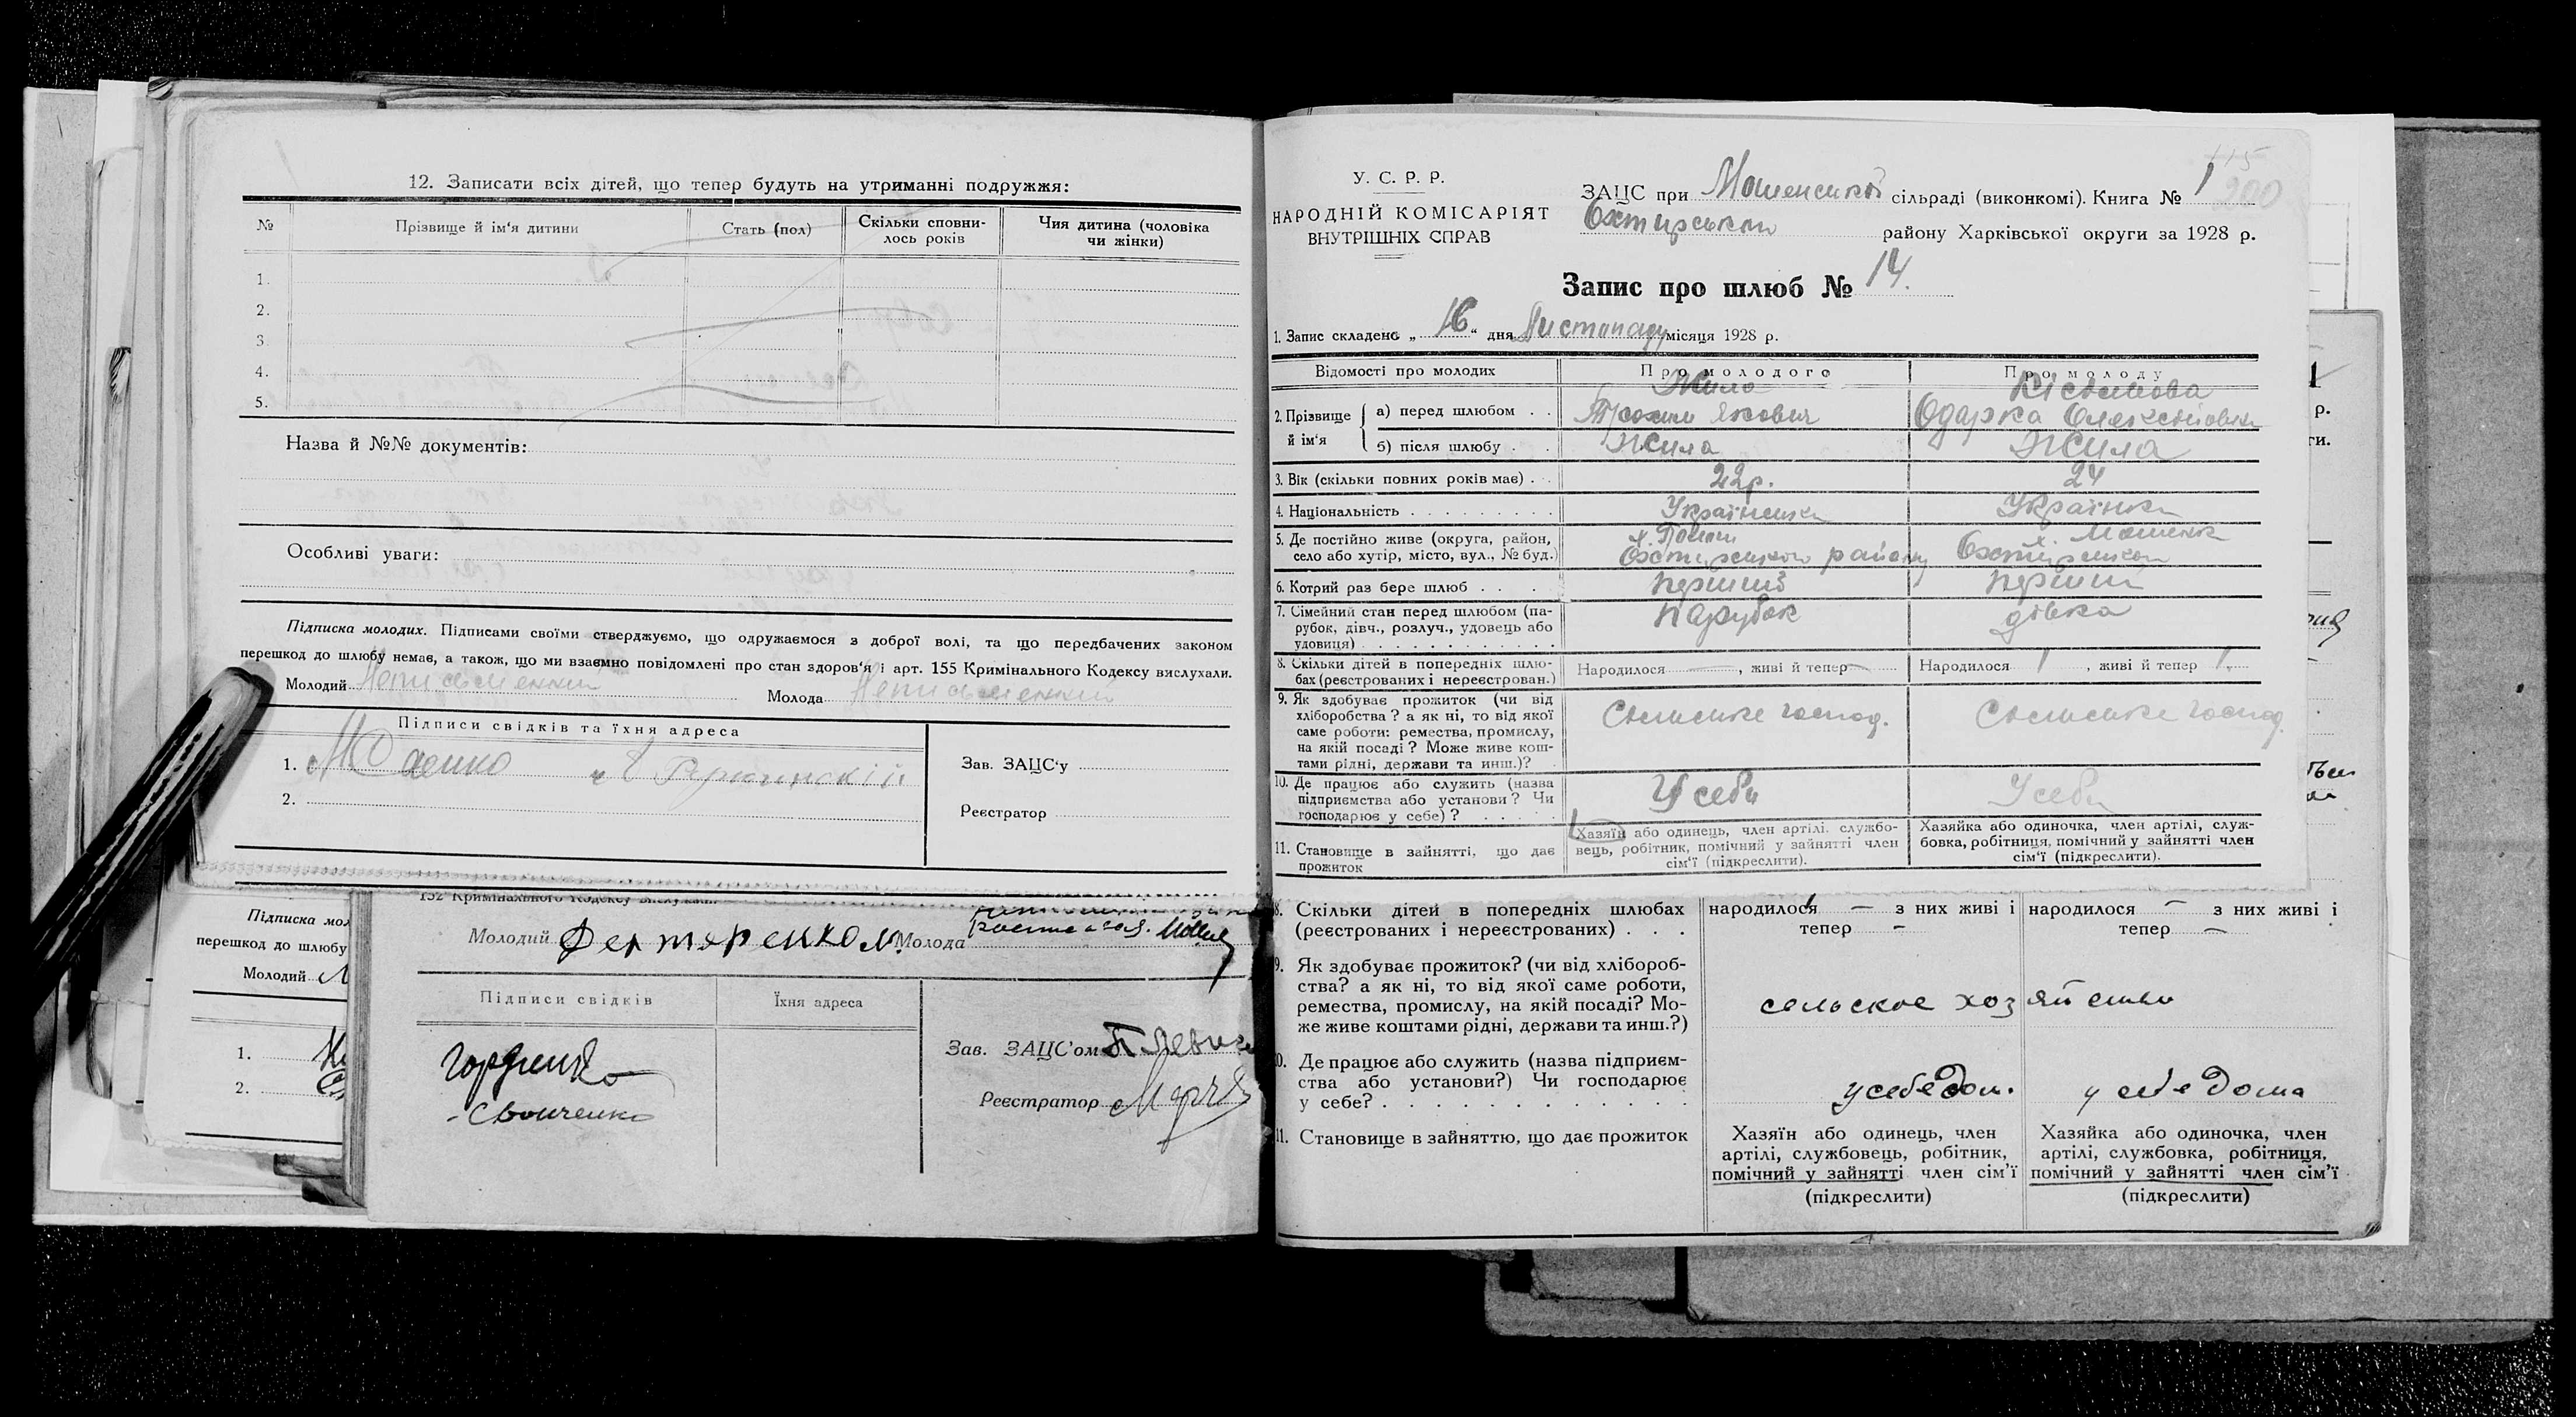 12. Записати всіх дітей, що тепер будуть на утриманні подружжя:
№ Прізвище й ім'я дитини Стать (пол) Скільки сповни- Чия дитина (чоловіка
лось років чи жінки)
1.
2.
3.
4.
5.
Назва й №№ документів:
Особливі уваги:
Підписка молодих. Підписами своїми стверджуємо, що одружаємося з доброї волі, та що передбачених законом
перешкод до шлюбу немає, а також, що ми взаємно повідомлені про стан здоров'я і арт. 155 Кримінального Кодексу вислухали.
Молодий Неписьменний Молода Неписьменний
Підписи свідків та їхня адреса
1.
2.
Зав. ЗАЦС'у
Реєстратор
Підписка мол
перешкод до шлюбу
Молодий
1.
2.
152 Кримінального Кодексу вислухали.
Молодий Молода
Підписи свідків Їхня адреса
Гордиенко
Зав. ЗАЦС'ом
Реєстратор
У. С. Р. Р.
НАРОДНІЙ КОМІСАРІЯТ
ВНУТРІШНІХ СПРАВ
115
200
ЗАЦС при Мошенській сільраді (виконкомі). Книга № 1
Охтирськом району Харківської округи за 1928 р.
Запис про шлюб № 14.
1. Запис складено „ 16 “ дня Листопаду місяця 1928 р.
Відомості про молодих Про молодого Про молоду
2. Прізвище й ім'я
а) перед шлюбом . . Жила Якович Одарка
б) після шлюбу . . Жила Жила
3. Вік (скільки повних років має) . . 22р. 24
4. Національність . . . . . . . . . Українська Українка
5. Де постійно живе (округа, район,
село або хутір, місто, вул., № буд.) Охтирського району х. Мошенка Охтирського
6. Котрий раз бере шлюб . . . перший перший
7. Сімейний стан перед шлюбом (па-
рубок, дівч., розлуч., удовець або
удовиця) . . . . . . . . . . . . парубок дівка
8. Скільки дітей в попередніх шлю-
бах (реєстрованих і нереєстрован.) Народилося — , живі й тепер — Народилося 1 , живі й тепер 1.
9. Як здобуває прожиток (чи від
хліборобства? а як ні, то від якої
саме роботи: ремества, промислу,
на якій посаді? Може живе кош-
тами рідні, держави та инш.)? Сільське господ. Сільське господ.
10. Де працює або служить (назва
підприємства або установи? Чи
господарює у себе)? . . . . . У себи У себи
11. Становище в зайнятті, що дає
прожиток
Хазяїн або одинець, член артілі, службо-
вець, робітник, помічний у зайнятті член
сім'ї (підкреслити).
Хазяйка або одиночка, член артілі, служ-
бовка, робітниця, помічний у зайнятті член
сім'ї (підкреслити).
р.
ги.
8. Скільки дітей в попередніх шлюбах
(реєстрованих і нереєстрованих) . . .
народилося — з них живі і
тепер —
народилося — з них живі і
тепер —
9. Як здобуває прожиток? (чи від хлібороб-
ства? а як ні, то від якої саме роботи,
ремества, промислу, на якій посаді? Мо-
же живе коштами рідні, держави та инш.?)
сельское хозяйство
10. Де працює або служить (назва підприєм-
ства або установи?) Чи господарює
у себе? . . . . . . . . . . . . .
у себе дом. у себе дома
11. Становище в зайняттю, що дає прожиток
Хазяїн або одинець, член
артілі, службовець, робітник,
помічний у зайнятті член сім'ї
(підкреслити)
Хазяйка або одиночка, член
артілі, службовка, робітниця,
помічний у зайнятті член сім'ї
(підкреслити)